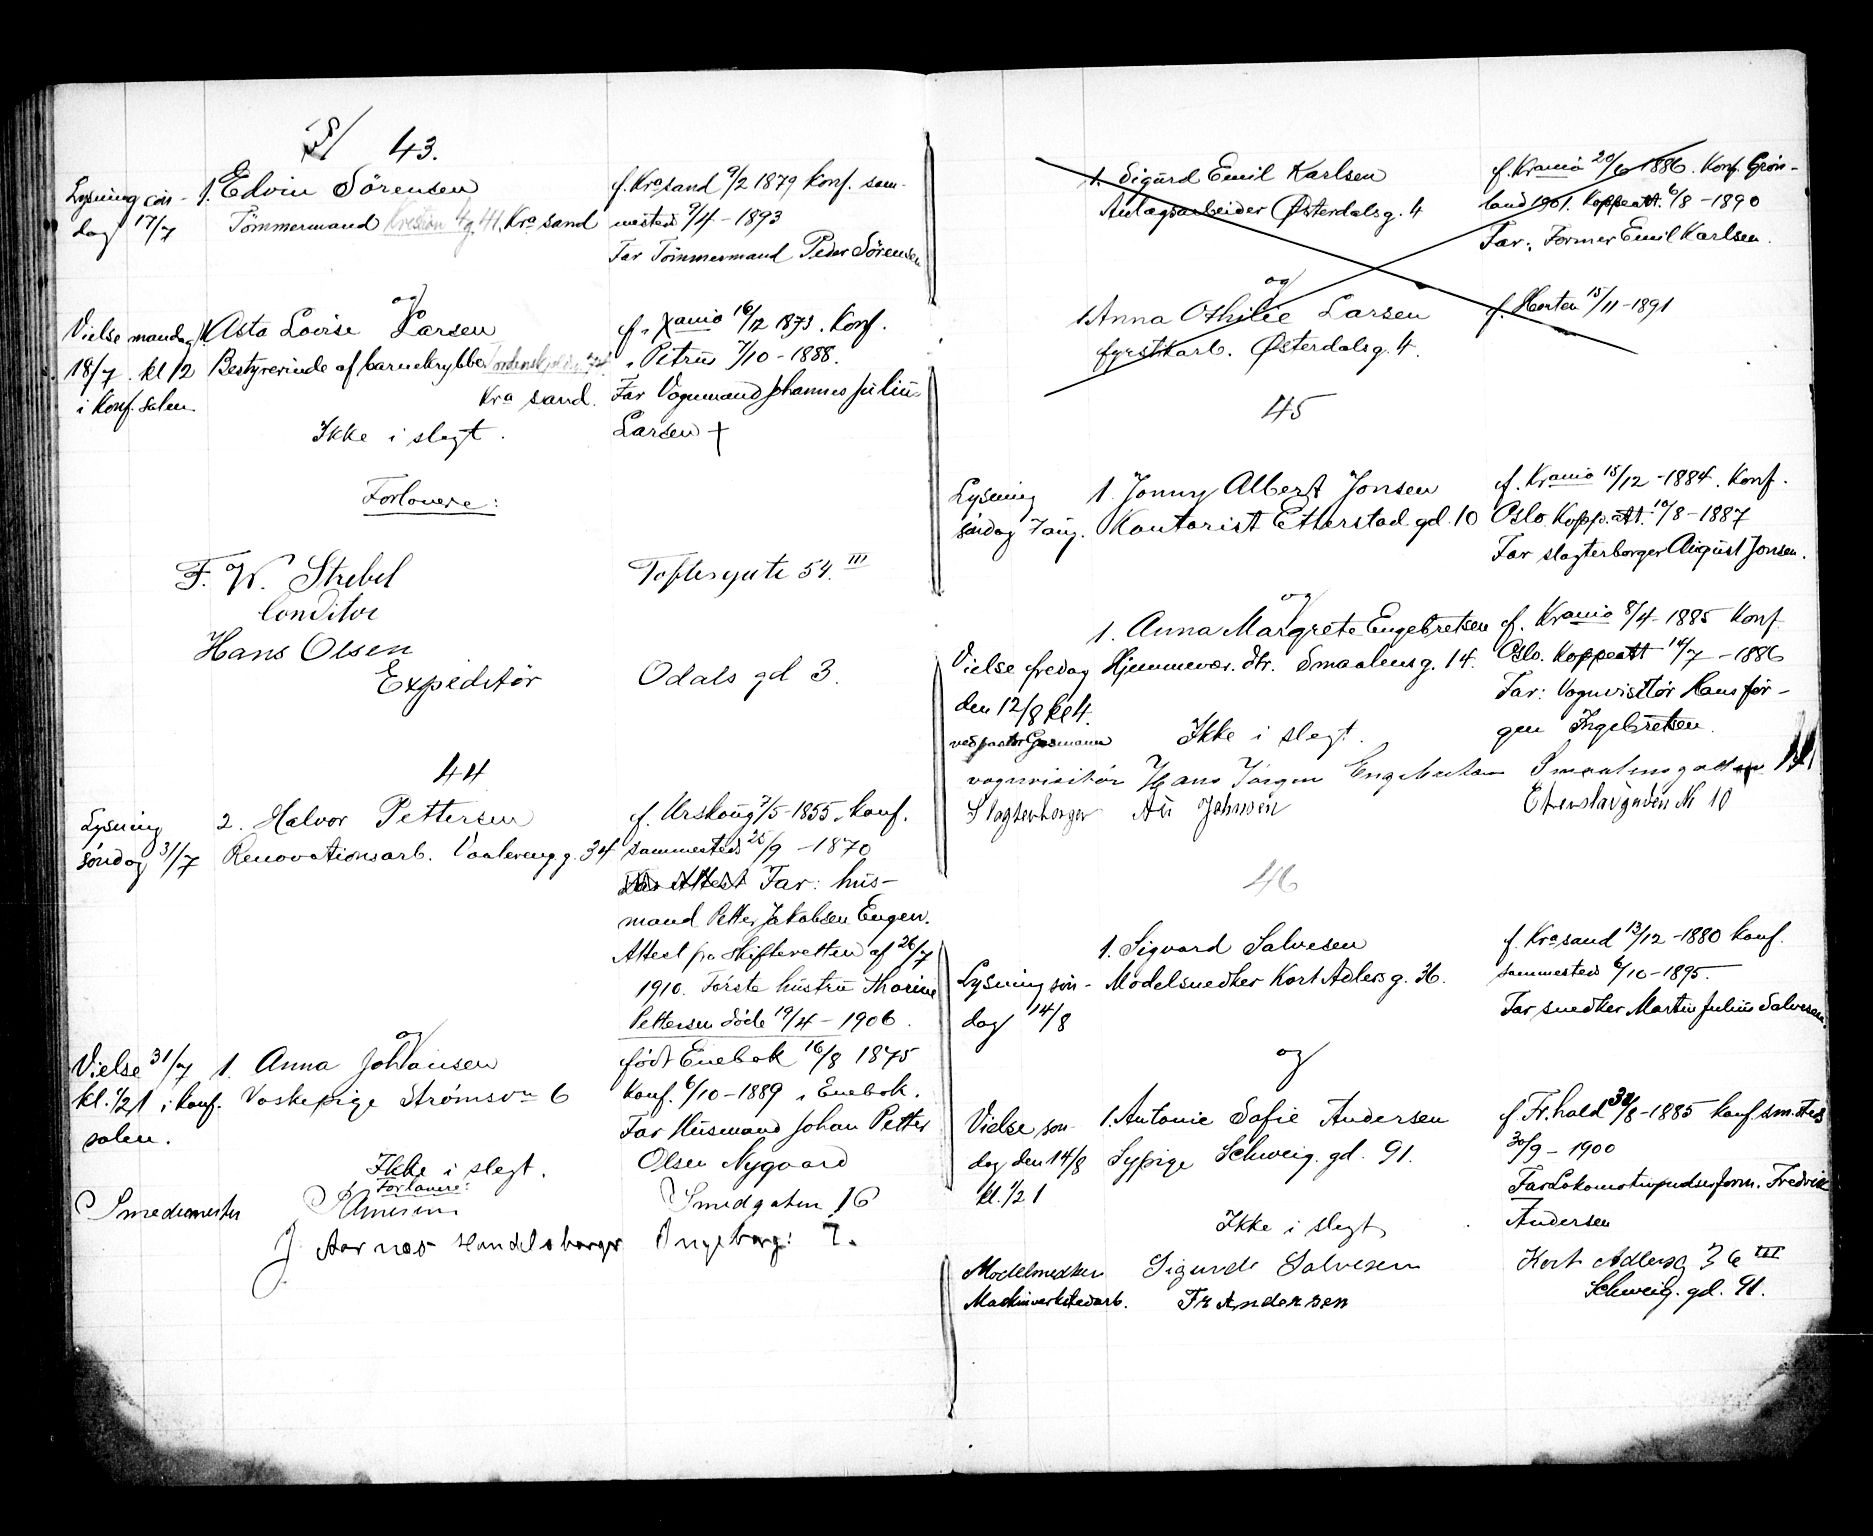 43.
Lysning søn- 1. Edvin Sörensen f. Kra sand 9/2 1879 Konf. sam-
dag 17/7 Tömmermand g. 41. Kra sand mesteds 9/4 - 1893
Far Tömmermand Peder Sörensen
og
Vielse mandag 1. Asta Lovise Larsen f. i Xania 16/12 1873. Konf.
18/7. kl 12 Bestyrerinde af barnekrybbe i Petrus 7/10 - 1888.
i Konf. salen Kra sand. Far Vognmand Johannes Julius
Ikke i slegt. Larsen †
Forlovere:
F. W. Strebel Toftesgate 54. III
Conditor
Hans Olsen
Expeditør Odals gd 3.
44
Lysning 2. Halvor Pettersen f. Urskoug 7/5 - 1855. Konf.
söndag 31/7 Renovationsarb. Vaalereng g. 34 sammesteds 25/9 - 1870
Far: hus-
mand Petter Jakobsen Eugen.
Attest fra Skifteretten af 26/7
1910. Förste hustru Thorine
Pettersen döde 19/4 - 1906.
og
Vielse 31/7 1. Anna Johansen født Enebak 16/8 1875
kl. 1/2 1 i konf. Vaskepige Strømsvn 6 Konf. 6/10 - 1889 i Enebok.
salen. Far Husmand Johan Petter
Ikke i slegt. Olsen Nygaard
Forlovere:
Smedemester Smedgaten 16
J. Aarnæs Handelsborger Ingeborg: 7.
1. Sigurd Emil Karlsen f. Krania 20/6 1886. Konf. Grön-
Anlægsarbeider Østerdalsg. 4 land 1901. Koppeatt. 6/8 - 1890
Far: Former Emil Karlsen.
og
1. Anna Othilie Larsen f. Horten 15/11 - 1891
fyrstkarb. Østerdalsg. 4.
45
Lysning 1. Jonny Albert Jonsen f. Krania 15/12 - 1884. Konf.
söndag 7 aug. Kontorist Etterstad gd. 10 Oslo Kopp. At. 10/8 - 1887
Far slagterborger August Jonsen.
og
1. Anna Margrete Engebretsen f. Krania 8/4 - 1885 Konf
Vielse fredag Hjemmevær. dtr. Smaalensg. 14. Oslo. Koppeatt 14/7 - 1886
den 12/8 kl 4. Far: Vognvisitör Hans Jör-
ved pastor Gosmann Ikke i slegt. gen Ingebretsen.
vognvisitör Hans Jørgen Engebretsen Smaalensgaten 14
Slagterborger Au Johnsen Etterstadgaden No 10
46
1. Sigvard Salvesen f. Kra sand 13/12 - 1880 konf.
Lysning søn- Modelsnedker Kort Adlers g. 36. sammesteds 6/10 - 1895.
dag 14/8 Far snedker Martin Julius Salvesen.
og
Vielse søn- 1. Antonie Sofie Andersen f Fr.hald /8 - 1885 konf sm. steds
dag den 14/8 Sypige Schweig. gd. 91. 30/9 - 1900
kl. 1/2 1 Far Lokomotivpudserform. Fredrik
Ikke i slegt Andersen
Modelsnedker Sigurd Salvesen Kort Adlersg 36 III
Maskinverkstedarb. Fr Andersen Schweig. gd. 91.